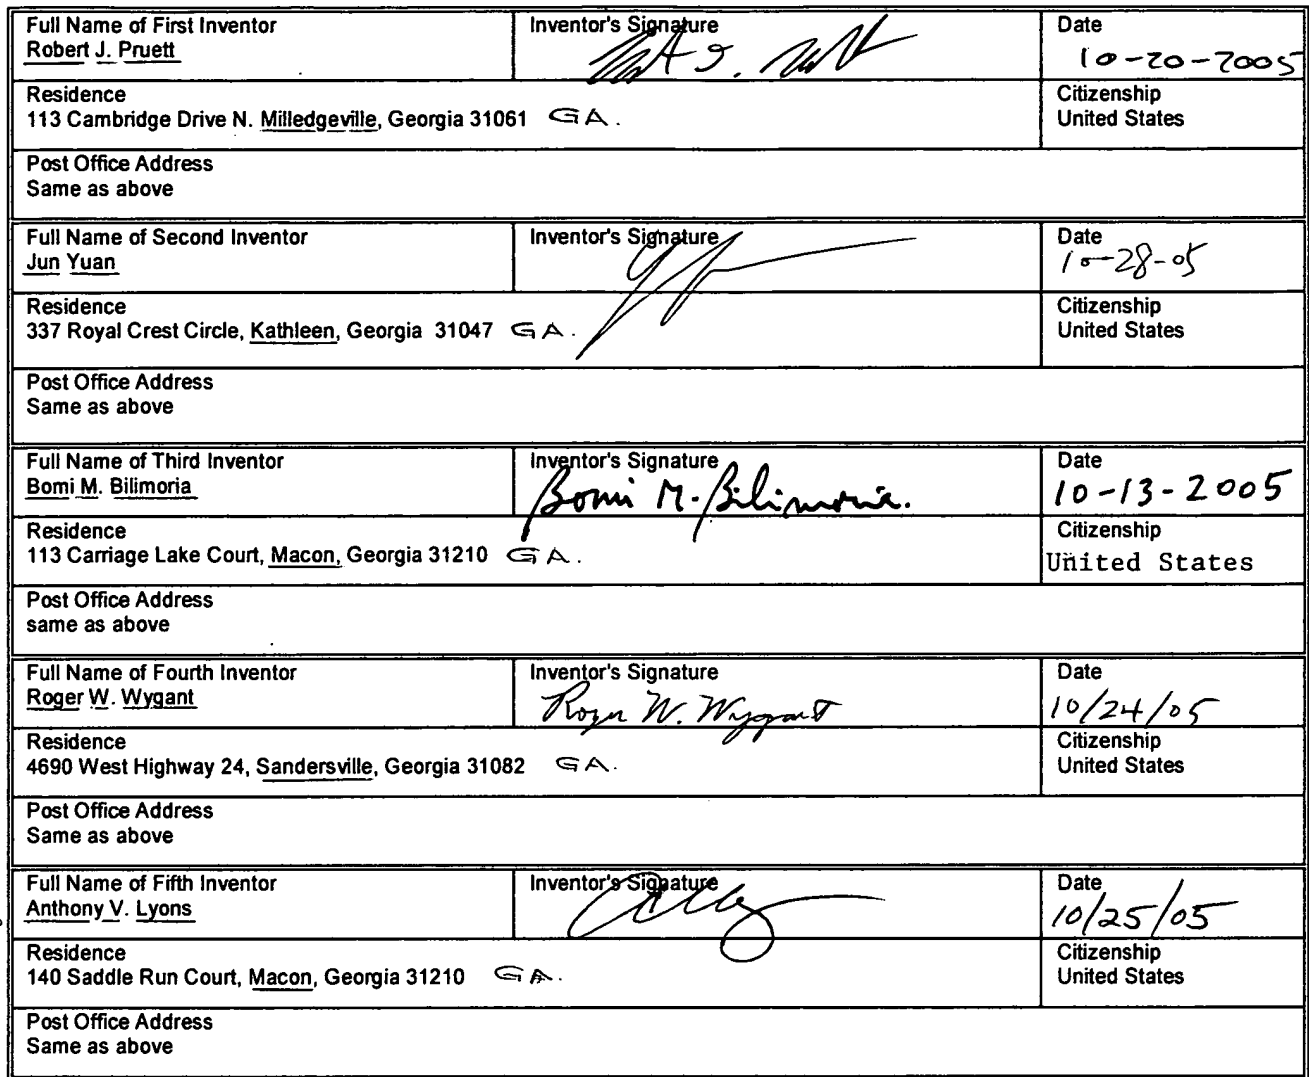 Full Name of First Inventor
Robert J. Pruett
Inventor's Signature
Date
10-20-2005
Residence
113 Cambridge Drive N. Milledgeville, Georgia 31061 GA.
Citizenship
United States
Post Office Address
Same as above
Full Name of Second Inventor
Jun Yuan
Inventor's Signature
Date
10-28-05
Residence
337 Royal Crest Circle, Kathleen, Georgia 31047 GA.
Citizenship
United States
Post Office Address
Same as above
Full Name of Third Inventor
Bomi M. Bilimoria
Inventor's Signature
Bomi M. Bilimoria.
Date
10-13-2005
Residence
113 Carriage Lake Court, Macon, Georgia 31210 GA.
Citizenship
United States
Post Office Address
same as above
Full Name of Fourth Inventor
Roger W. Wygant
Inventor's Signature
Roger W. Wygant
Date
10/24/05
Residence
4690 West Highway 24, Sandersville, Georgia 31082 GA.
Citizenship
United States
Post Office Address
Same as above
Full Name of Fifth Inventor
Anthony V. Lyons
Inventor's Signature
Date
10/25/05
Residence
140 Saddle Run Court, Macon, Georgia 31210 GA.
Citizenship
United States
Post Office Address
Same as above